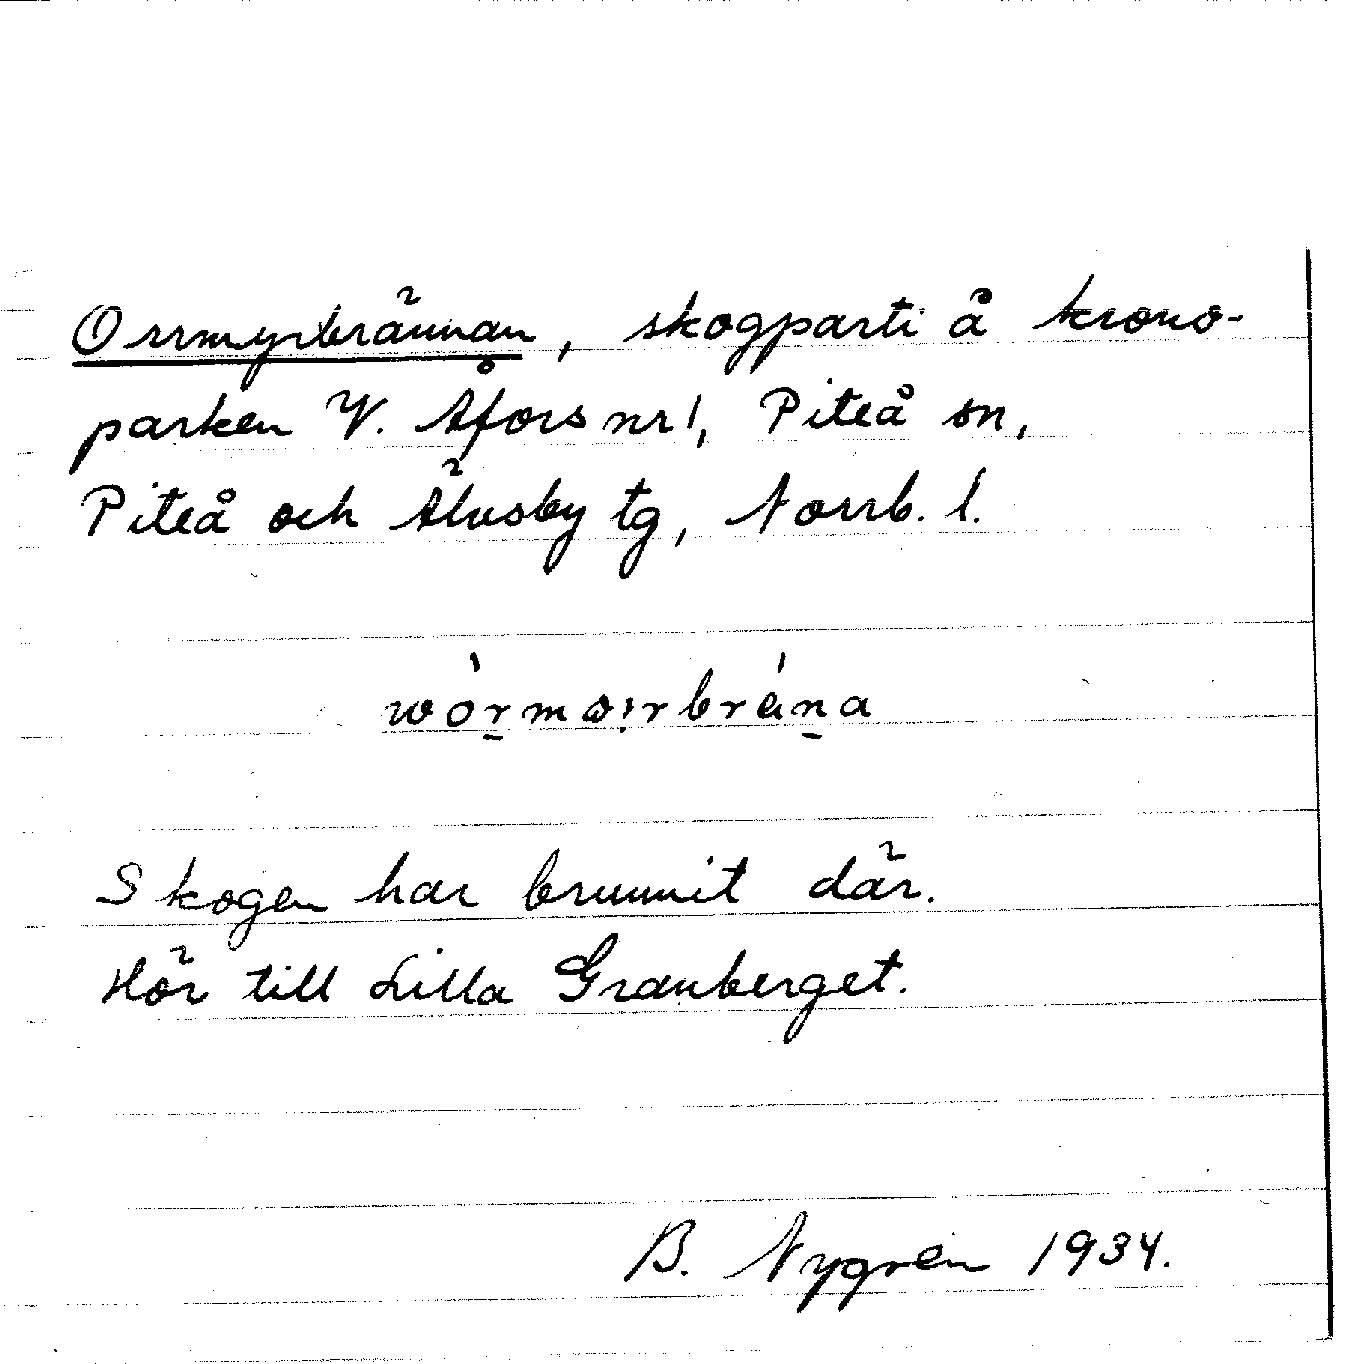 Orrmyrbrännan, skogparti å krono-
parken V. Åfors nr 1, Piteå sn,
Piteå och Älvsby tg, Norrb. l.
Skogen har brunnit där.
Hör till Lilla Granberget.
B. Nygren 1934.